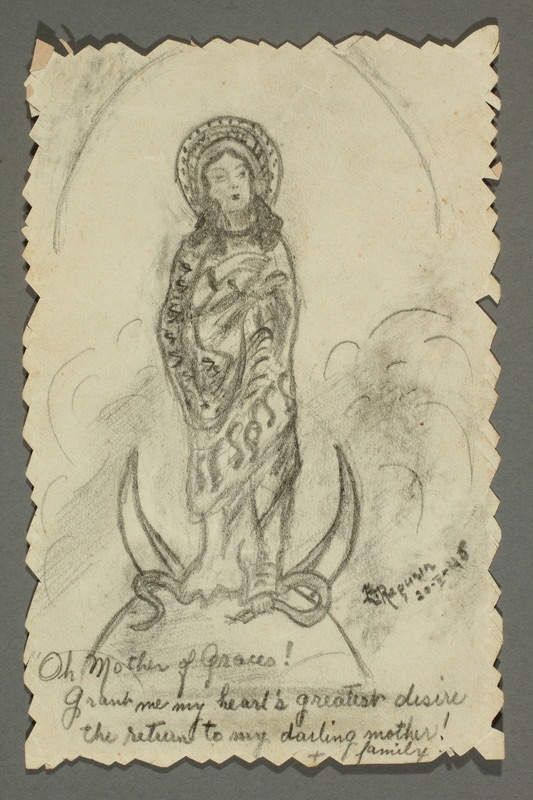 20-3-45
"Oh Mother of Graces!
Grant me my heart's greatest desire
the return to my darling mother!
+ family